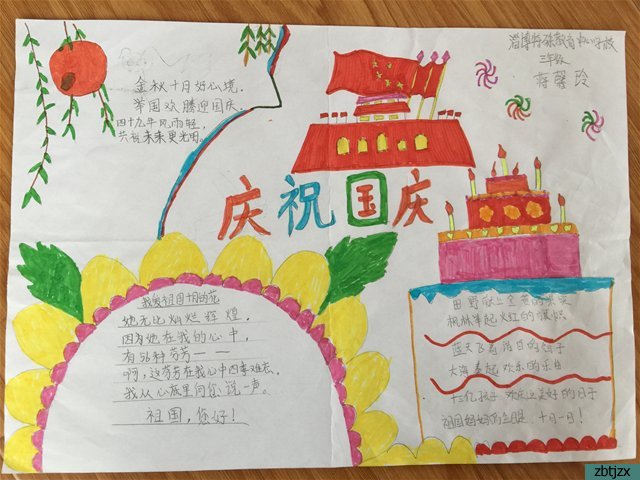 淄博特殊教育中心学校
三年级
蒋馨玲
金秋十月好心境，
举国欢腾迎国庆。
四十九年风雨轻，
共祝未来更光明。
庆祝国庆
我爱祖国十月的花
她无比灿烂辉煌，
因为她在我的心中，
有56种芬芳——
啊，这芬芳在我心中四季难忘，
我从心底里向您说一声。
祖国，您好！
田野献上金黄的果实
枫林举起火红的旗帜
蓝天飞着洁白的鸽子
大海奏起欢乐的乐曲
十三亿孩子欢庆这美好的日子
祖国妈妈的生日，十月一日！
zbtjzx